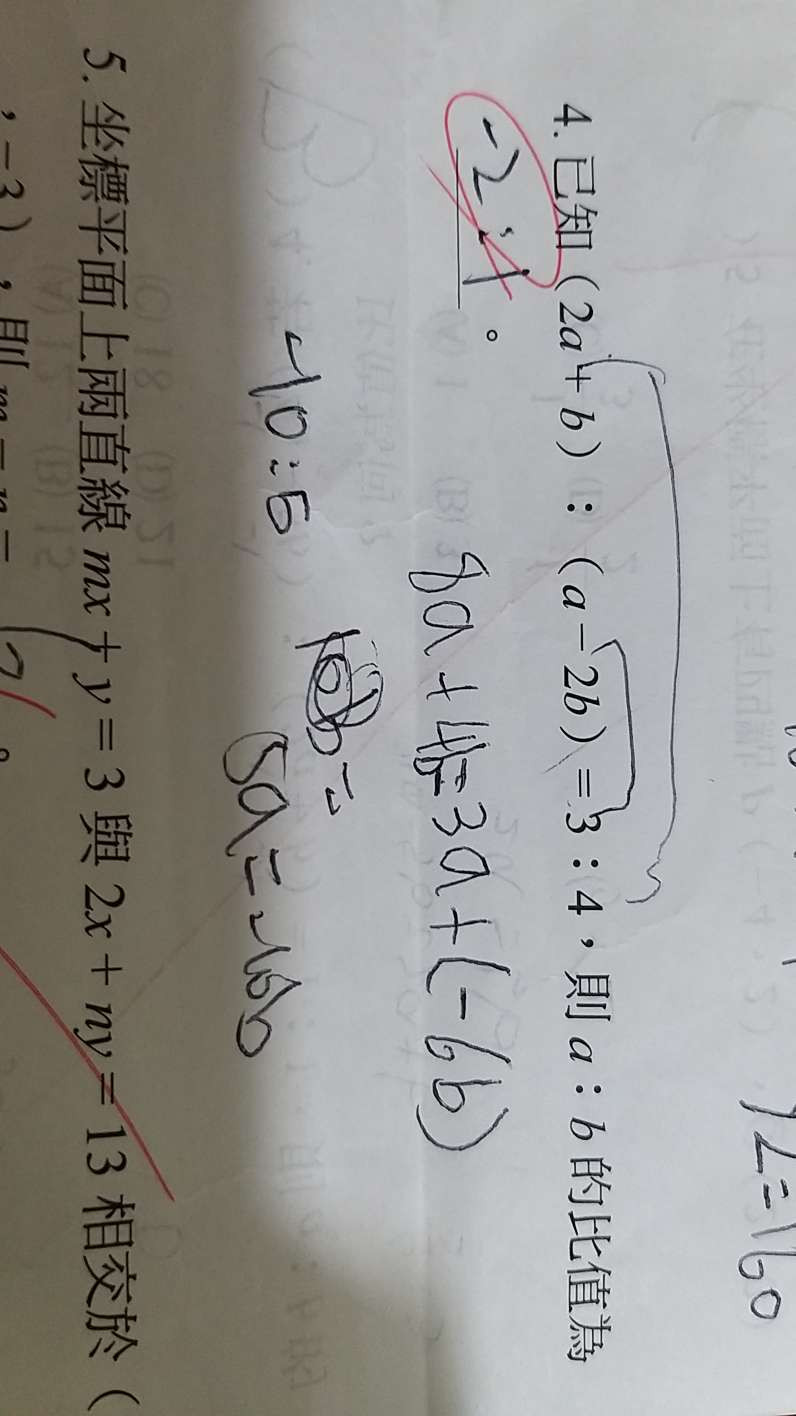 4. 已知 (2a + b) : (a − 2b) = 3 : 4，則 a : b 的比值為
-2:1 。
8a + 4b = 3a + (-6b)
5a = -10b
-10:5
5. 坐標平面上兩直線 mx + y = 3 與 2x + ny = 13 相交於 (
, −3)，則 m − n =